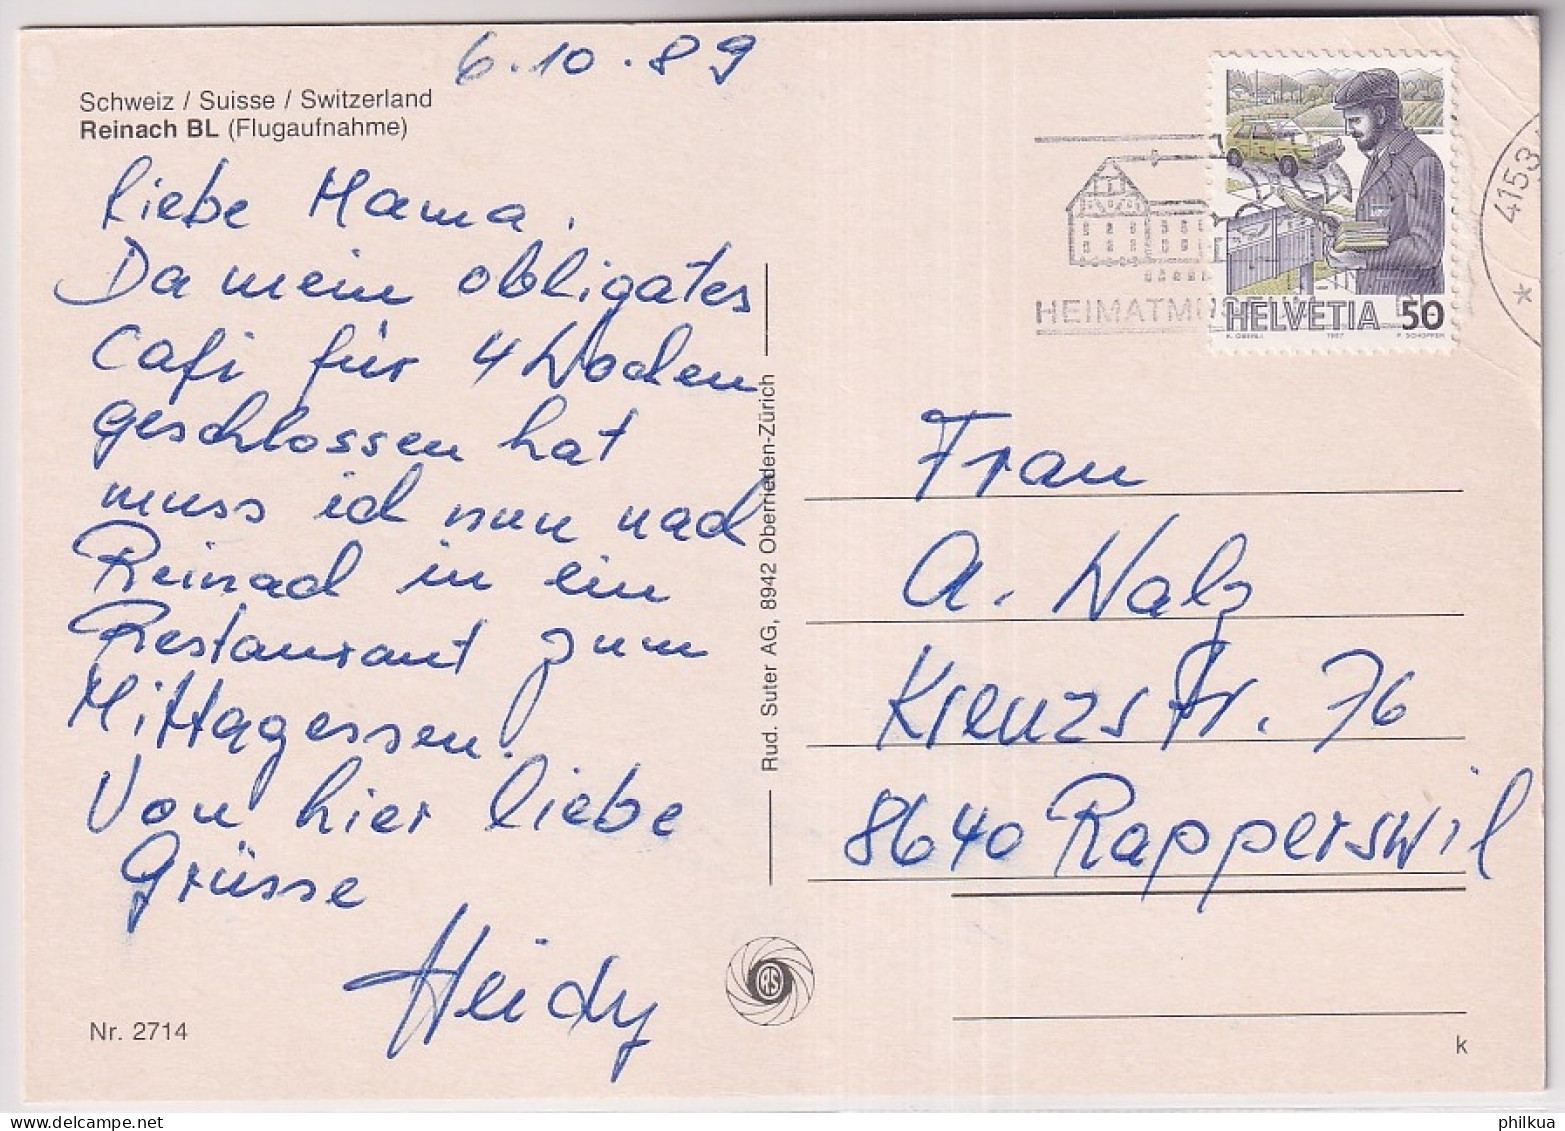 6.10.89
Schweiz / Suisse / Switzerland
Reinach BL (Flugaufnahme)
Liebe Mama,
Da mein obligates
Cafi für 4 Wochen
geschlossen hat
muss ich nun nach
Reinach in ein
Restaurant zum
Mittagessen.
Von hier liebe
Grüsse
Heidy
Nr. 2714
Rud. Suter AG, 8942 Oberrieden-Zürich
RS
HEIMATMUSEUM
4153
*
HELVETIA 50
K. OBERLI 1987 P. SCHOPFER
Frau
A. Walz
Kreuzstr. 76
8640 Rapperswil
k
philkua